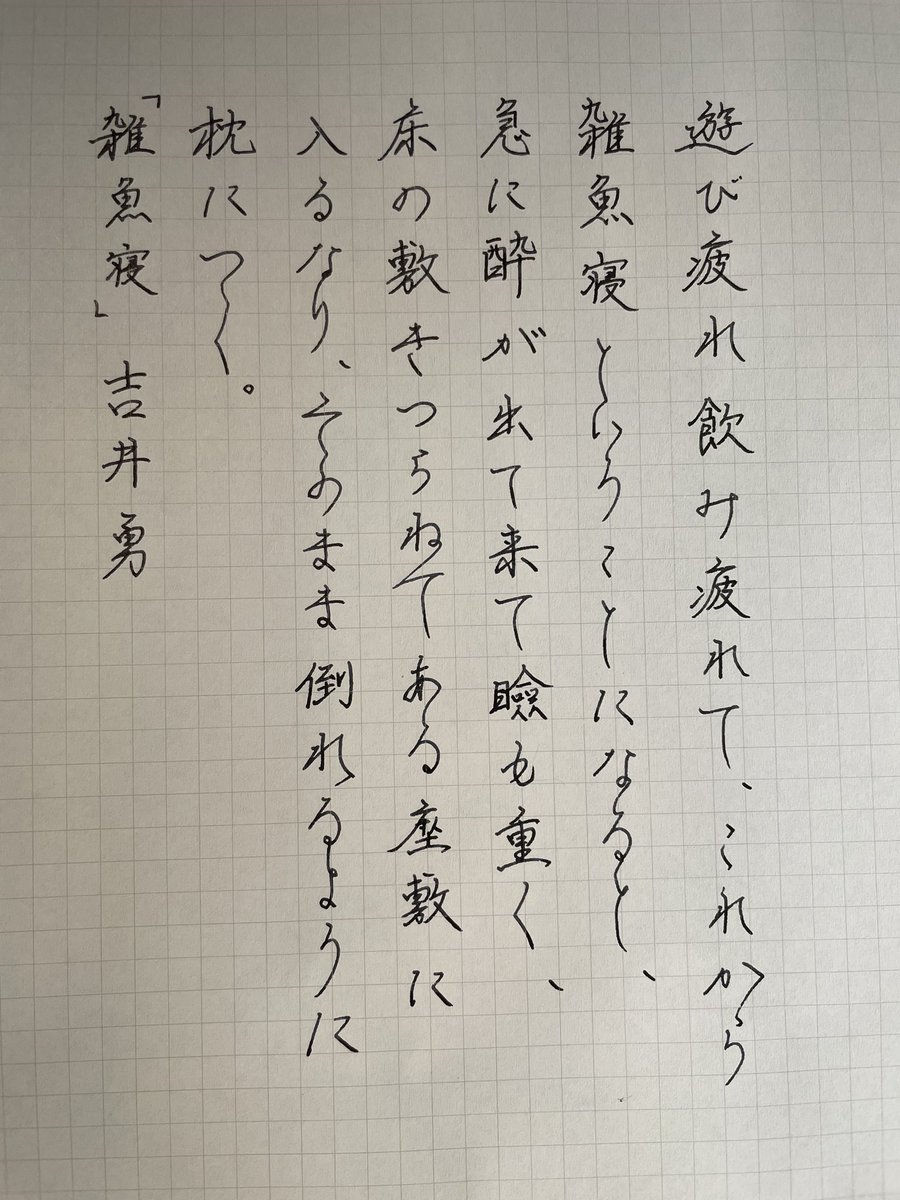 遊び疲れ飲み疲れて、これから
雑魚寝ということになると、
急に酔が出て来て瞼も重く、
床の敷きつらねてある座敷に
入るなり、そのまま倒れるように
枕につく。
「雑魚寝」 吉井勇